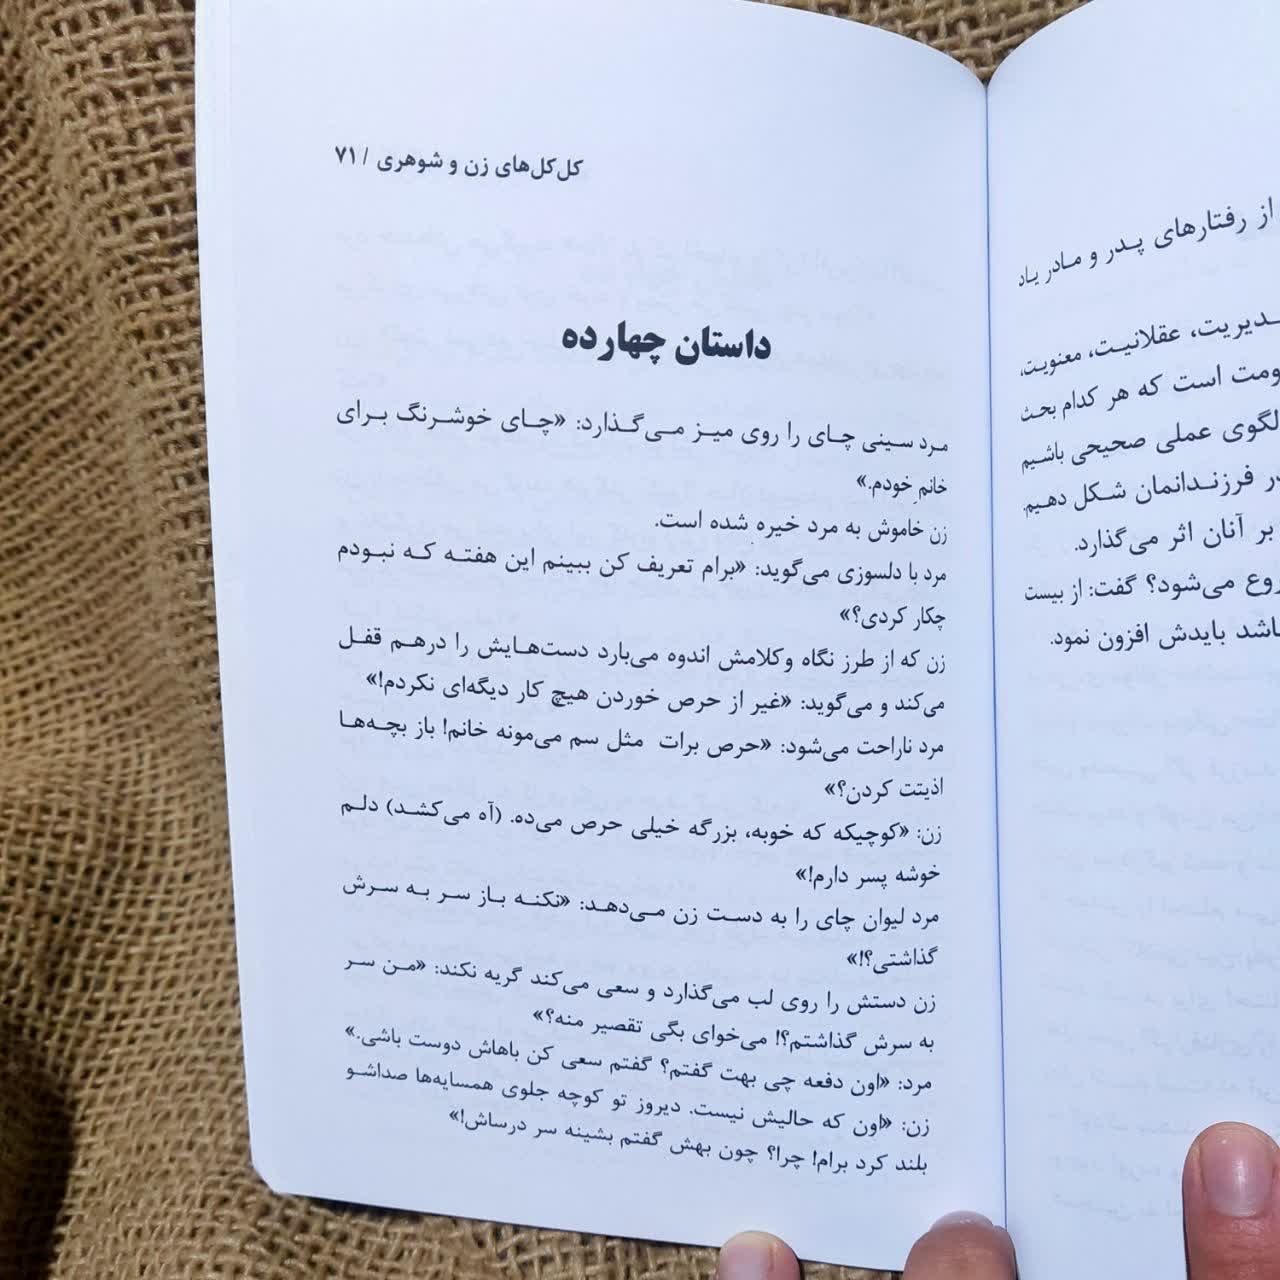 از رفتارهای پدر و مادر یاد
ـدیریت، عقلانیت، معنویت،
ومت است که هر کدام بحث
لگوی عملی صحیحی باشیم
ر فرزندانمان شکل دهیم.
بر آنان اثر می‌گذارد.
روع می‌شود؟ گفت: از بیست
باشد بایدش افزون نمود.
کل‌کل‌های زن و شوهری / ۷۱
داستان چهارده
مرد سینی چای را روی میز می‌گذارد: «چای خوشرنگ برای
خانم ِخودم.»
زن خاموش به مرد خیره شده است.
مرد با دلسوزی می‌گوید: «برام تعریف کن ببینم این هفته که نبودم
چکار کردی؟»
زن که از طرز نگاه وکلامش اندوه می‌بارد دست‌هایش را درهم قفل
می‌کند و می‌گوید: «غیر از حرص خوردن هیچ کار دیگه‌ای نکردم!»
مرد ناراحت می‌شود: «حرص برات مثل سم می‌مونه خانم! باز بچه‌ها
اذیتت کردن؟»
زن: «کوچیکه که خوبه، بزرگه خیلی حرص می‌ده. (آه می‌کشد) دلم
خوشه پسر دارم!»
مرد لیوان چای را به دست زن می‌دهد: «نکنه باز سر به سرش
گذاشتی؟!»
زن دستش را روی لب می‌گذارد و سعی می‌کند گریه نکند: «من سر
به سرش گذاشتم؟! می‌خوای بگی تقصیر منه؟»
مرد: «اون دفعه چی بهت گفتم؟ گفتم سعی کن باهاش دوست باشی.»
زن: «اون که حالیش نیست. دیروز تو کوچه جلوی همسایه‌ها صداشو
بلند کرد برام! چرا؟ چون بهش گفتم بشینه سر درساش!»